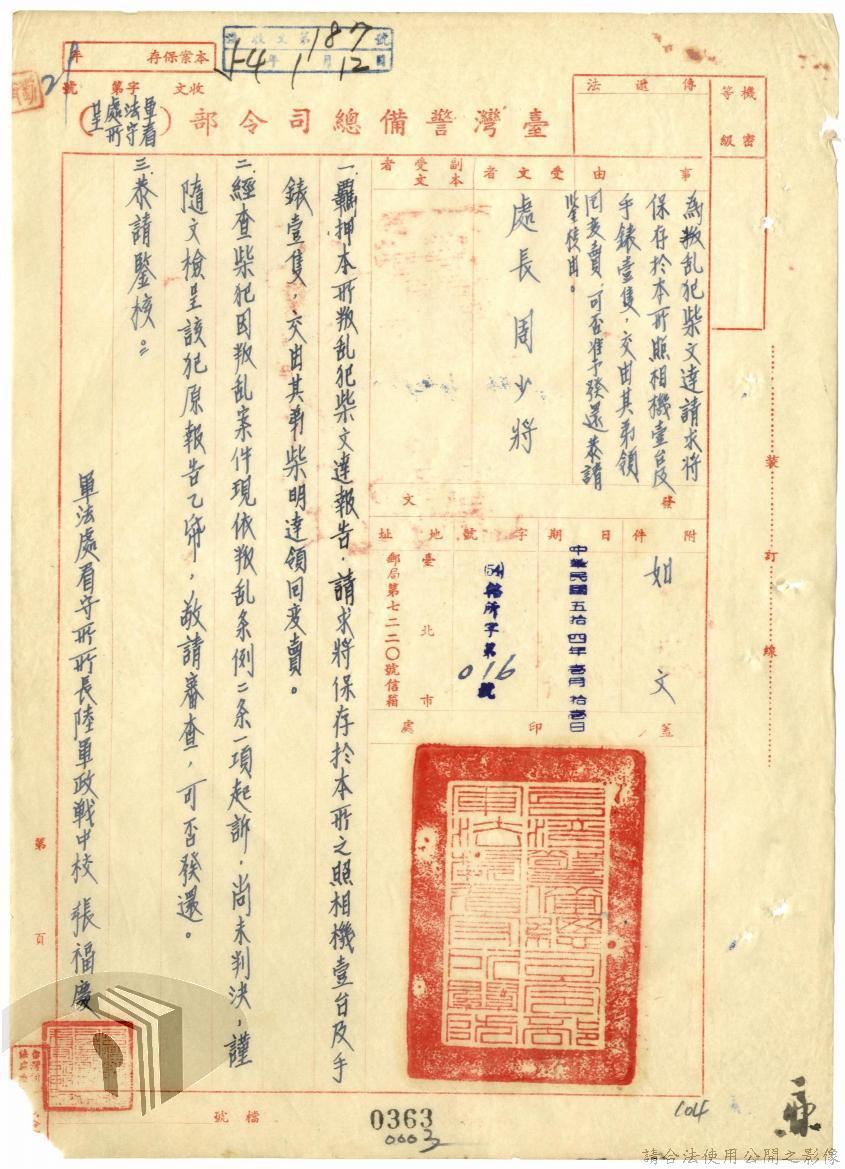 收文第187號
54年1月12日
本案保存 年
收文 字第 號
臺灣警備總司令部(軍法處看守所呈)
機密等級
傳遞法
事由
為叛乱犯柴文達請求將
保存於本所照相機壹台及
手錶壹隻,交由其弟領
回变賣,可否准予發還恭請
鑒核由。
受文者
處長周少將
副本受文者
發文
附件
如文
日期
中華民國五拾四年壹月拾壹日
字號
(54)
字第016號
地址
臺北市
郵局第七二二〇號信箱
蓋印處
一、羈押本所叛乱犯柴文達報告,請求將保存於本所之照相機壹台及手
錶壹隻,交由其弟柴明達領回变賣。
二、經查柴犯因叛乱案件現依叛乱条例二条一項起訴,尚未判決,謹
隨文檢呈該犯原報告乙帋,敬請審查,可否發還。
三、恭請鑒核。
軍法處看守所所長陸軍政戰中校張福慶
裝訂線
第 頁
檔號
0363
0003
104
請合法使用公開之影像